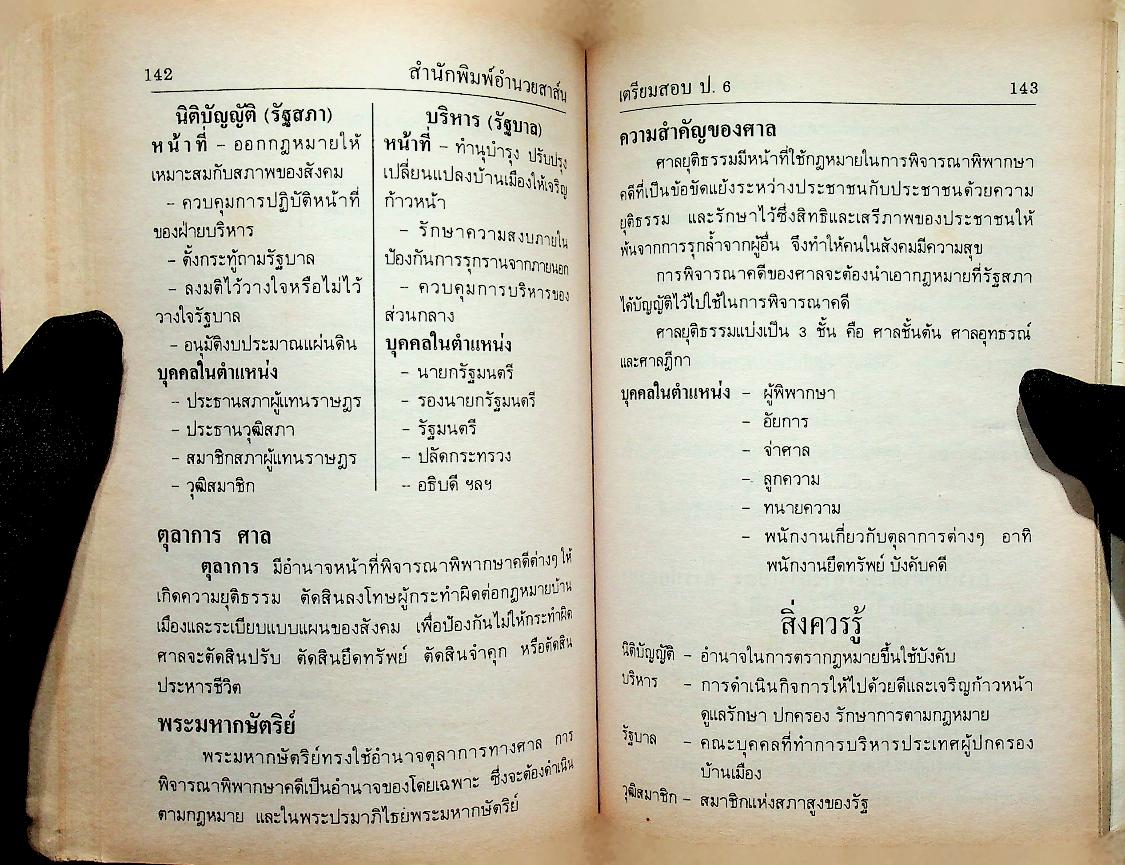 142
สำนักพิมพ์อำนวยสาส์น
นิติบัญญัติ (รัฐสภา)
หน้าที่ – ออกกฎหมายให้
เหมาะสมกับสภาพของสังคม
– ควบคุมการปฏิบัติหน้าที่
ของฝ่ายบริหาร
– ตั้งกระทู้ถามรัฐบาล
– ลงมติไว้วางใจหรือไม่ไว้
วางใจรัฐบาล
– อนุมัติงบประมาณแผ่นดิน
บุคคลในตำแหน่ง
– ประธานสภาผู้แทนราษฎร
– ประธานวุฒิสภา
– สมาชิกสภาผู้แทนราษฎร
– วุฒิสมาชิก
บริหาร (รัฐบาล)
หน้าที่ – ทำนุบำรุง ปรับปรุง
เปลี่ยนแปลงบ้านเมืองให้เจริญ
ก้าวหน้า
– รักษาความสงบภายใน
ป้องกันการรุกรานจากภายนอก
– ควบคุมการบริหารของ
ส่วนกลาง
บุคคลในตำแหน่ง
– นายกรัฐมนตรี
– รองนายกรัฐมนตรี
– รัฐมนตรี
– ปลัดกระทรวง
– อธิบดี ฯลฯ
ตุลาการ ศาล
ตุลาการ มีอำนาจหน้าที่พิจารณาพิพากษาคดีต่างๆ ให้
เกิดความยุติธรรม ตัดสินลงโทษผู้กระทำผิดต่อกฎหมายบ้าน
เมืองและระเบียบแบบแผนของสังคม เพื่อป้องกันไม่ให้กระทำผิด
ศาลจะตัดสินปรับ ตัดสินยึดทรัพย์ ตัดสินจำคุก หรือตัดสิน
ประหารชีวิต
พระมหากษัตริย์
พระมหากษัตริย์ทรงใช้อำนาจตุลาการทางศาล การ
พิจารณาพิพากษาคดีเป็นอำนาจของโดยเฉพาะ ซึ่งจะต้องดำเนิน
ตามกฎหมาย และในพระปรมาภิไธยพระมหากษัตริย์
เตรียมสอบ ป. 6
143
ความสำคัญของศาล
ศาลยุติธรรมมีหน้าที่ใช้กฎหมายในการพิจารณาพิพากษา
คดีที่เป็นข้อขัดแย้งระหว่างประชาชนกับประชาชนด้วยความ
ยุติธรรม และรักษาไว้ซึ่งสิทธิและเสรีภาพของประชาชนให้
พ้นจากการรุกล้ำจากผู้อื่น จึงทำให้คนในสังคมมีความสุข
การพิจารณาคดีของศาลจะต้องนำเอากฎหมายที่รัฐสภา
ได้บัญญัติไว้ไปใช้ในการพิจารณาคดี
ศาลยุติธรรมแบ่งเป็น 3 ชั้น คือ ศาลชั้นต้น ศาลอุทธรณ์
และศาลฎีกา
บุคคลในตำแหน่ง – ผู้พิพากษา
– อัยการ
– จ่าศาล
– ลูกความ
– ทนายความ
– พนักงานเกี่ยวกับตุลาการต่างๆ อาทิ
พนักงานยึดทรัพย์ บังคับคดี
สิ่งควรรู้
นิติบัญญัติ – อำนาจในการตรากฎหมายขึ้นใช้บังคับ
บริหาร – การดำเนินกิจการให้ไปด้วยดีและเจริญก้าวหน้า
ดูแลรักษา ปกครอง รักษาการตามกฎหมาย
รัฐบาล – คณะบุคคลที่ทำการบริหารประเทศผู้ปกครอง
บ้านเมือง
วุฒิสมาชิก – สมาชิกแห่งสภาสูงของรัฐ